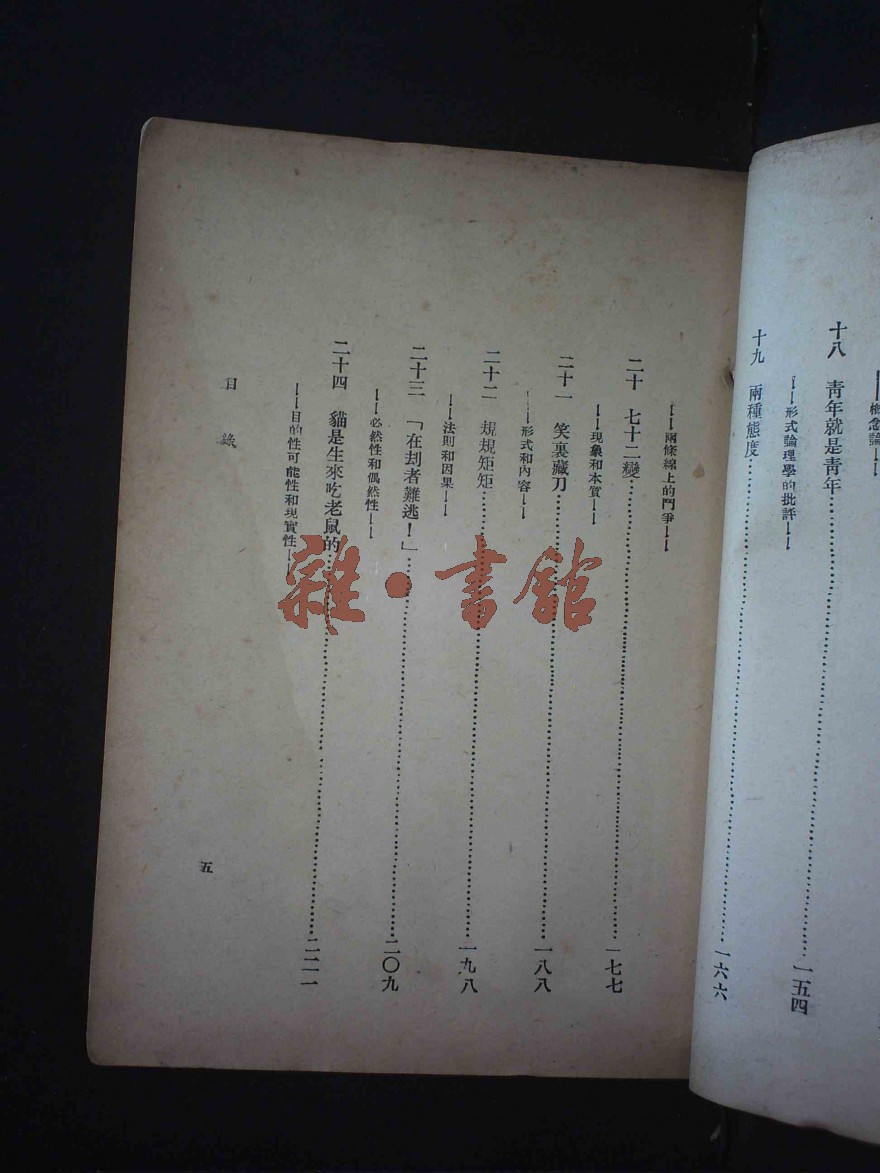 概念論——
十八　靑年就是靑年……一五四
——形式論理學的批評——
十九　兩種態度……一六六
——兩條線上的鬥爭——
二十　七十二變……一七七
——現象和本質——
二十一　笑裏藏刀……一八八
——形式和內容——
二十二　規規矩矩……一九八
——法則和因果——
二十三　「在刦者難逃！」……二〇九
——必然性和偶然性——
二十四　貓是生來吃老鼠的……二二一
——目的性可能性和現實性——
目錄
五
雜·書館